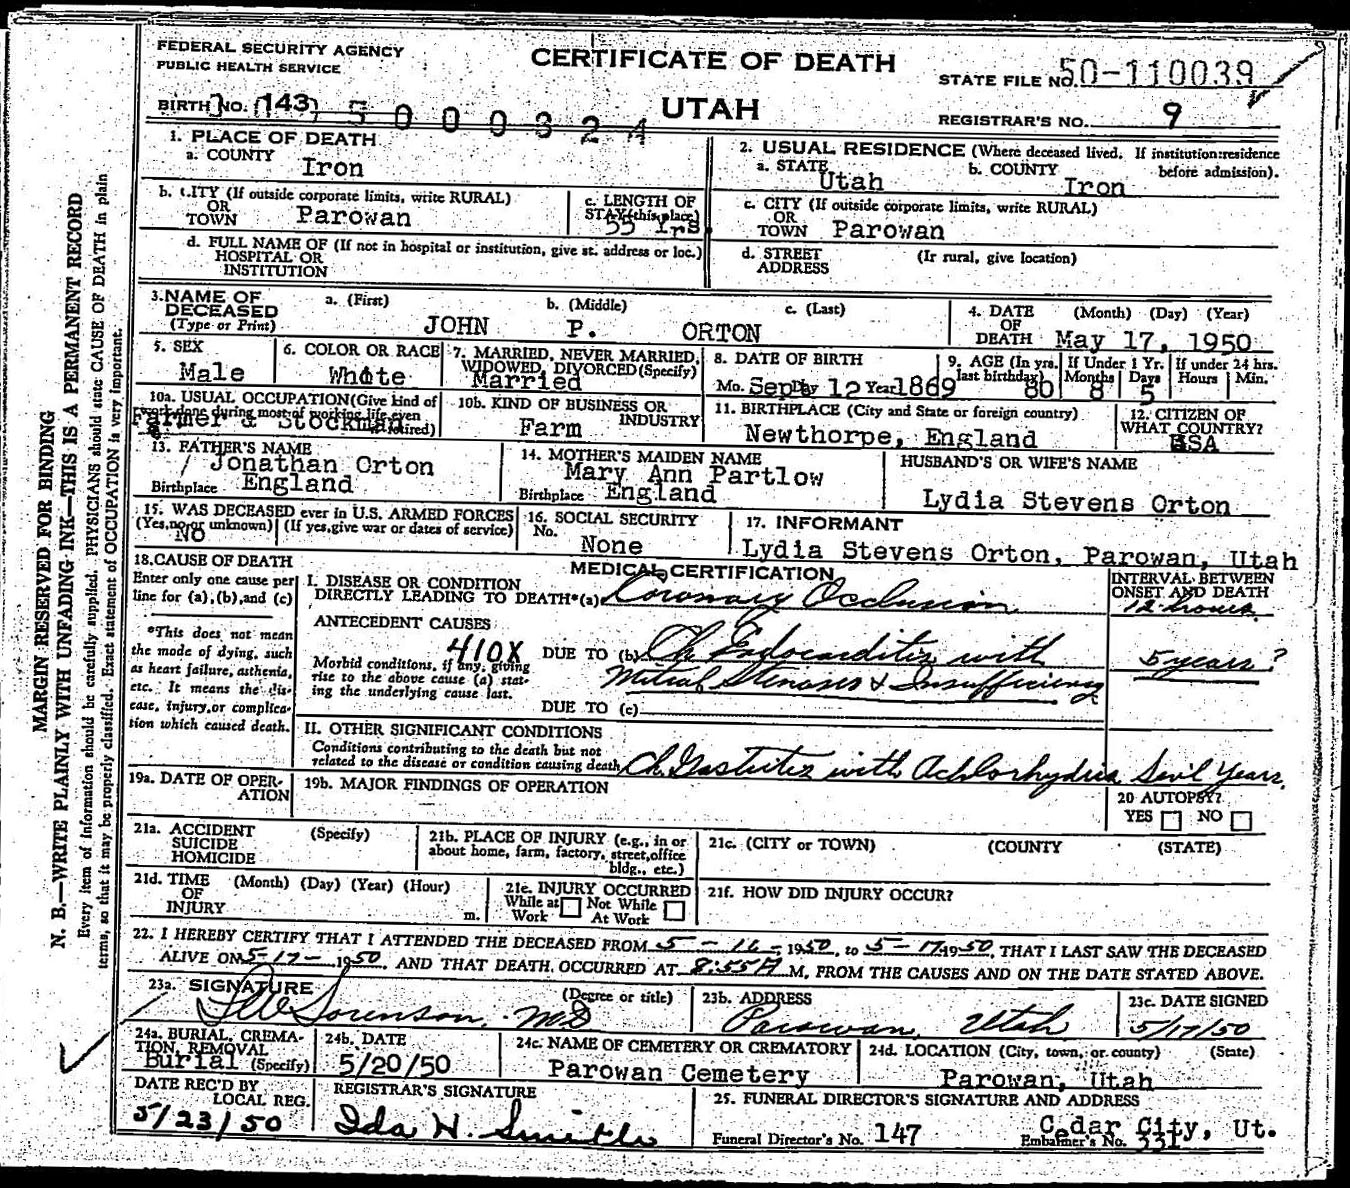 FEDERAL SECURITY AGENCY
PUBLIC HEALTH SERVICE
CERTIFICATE OF DEATH
STATE FILE NO. 50-110039
BIRTH NO. (143)
5 0 0 0 3 2 4
UTAH
REGISTRAR'S NO. 9
1. PLACE OF DEATH
a. COUNTY
Iron
2. USUAL RESIDENCE (Where deceased lived. If institution:residence before admission).
a. STATE Utah
b. COUNTY Iron
b. CITY (If outside corporate limits, write RURAL)
OR
TOWN Parowan
c. LENGTH OF
STAY (this place)
55 Yrs.
c. CITY (If outside corporate limits, write RURAL)
OR
TOWN Parowan
d. FULL NAME OF (If not in hospital or institution, give st. address or loc.)
HOSPITAL OR
INSTITUTION
d. STREET (If rural, give location)
ADDRESS
3. NAME OF
DECEASED
(Type or Print)
a. (First) b. (Middle) c. (Last)
JOHN P. ORTON
4. DATE (Month) (Day) (Year)
OF
DEATH May 17, 1950
5. SEX
Male
6. COLOR OR RACE
White
7. MARRIED, NEVER MARRIED,
WIDOWED, DIVORCED (Specify)
Married
8. DATE OF BIRTH
Mo. Sept Day 12 Year 1869
9. AGE (In yrs. last birthday) 80
If Under 1 Yr.
Months 8 Days 5
If under 24 hrs.
Hours Min.
10a. USUAL OCCUPATION (Give kind of
work done during most of working life, even
if retired)
Farmer & Stockman
10b. KIND OF BUSINESS OR
INDUSTRY
Farm
11. BIRTHPLACE (City and State or foreign country)
Newthorpe, England
12. CITIZEN OF
WHAT COUNTRY?
USA
13. FATHER'S NAME
Jonathan Orton
Birthplace England
14. MOTHER'S MAIDEN NAME
Mary Ann Partlow
Birthplace England
HUSBAND'S OR WIFE'S NAME
Lydia Stevens Orton
15. WAS DECEASED ever in U.S. ARMED FORCES
(Yes, no, or unknown) (If yes, give war or dates of service)
No
16. SOCIAL SECURITY
No.
None
17. INFORMANT
Lydia Stevens Orton, Parowan, Utah
18. CAUSE OF DEATH
Enter only one cause per
line for (a), (b), and (c)
*This does not mean
the mode of dying, such
as heart failure, asthenia,
etc. It means the dis-
ease, injury, or complica-
tion which caused death.
MEDICAL CERTIFICATION
I. DISEASE OR CONDITION
DIRECTLY LEADING TO DEATH*(a) Coronary Occlusion
INTERVAL BETWEEN
ONSET AND DEATH
12 hours
ANTECEDENT CAUSES
410X
Morbid conditions, if any, giving
rise to the above cause (a) stat-
ing the underlying cause last.
DUE TO (b) Ch Endocarditis with
Mitral Stenosis & Insufficiency
5 years?
DUE TO (c)
II. OTHER SIGNIFICANT CONDITIONS
Conditions contributing to the death but not
related to the disease or condition causing death
Ch Gastritis with Achlorhydria Sev'l Years.
19a. DATE OF OPER-
ATION
19b. MAJOR FINDINGS OF OPERATION
20 AUTOPSY?
YES NO
21a. ACCIDENT (Specify)
SUICIDE
HOMICIDE
21b. PLACE OF INJURY (e.g., in or
about home, farm, factory, street, office
bldg., etc.)
21c. (CITY or TOWN) (COUNTY (STATE)
21d. TIME (Month) (Day) (Year) (Hour)
OF
INJURY m.
21e. INJURY OCCURRED
While at Work Not While At Work
21f. HOW DID INJURY OCCUR?
22. I HEREBY CERTIFY THAT I ATTENDED THE DECEASED FROM 5-16-, 1950, to 5-17 1950, THAT I LAST SAW THE DECEASED
ALIVE ON 5-17- 1950, AND THAT DEATH OCCURRED AT 8:55A M, FROM THE CAUSES AND ON THE DATE STATED ABOVE.
23a. SIGNATURE (Degree or title)
Sorenson, MD
23b. ADDRESS
Parowan, Utah
23c. DATE SIGNED
5/17/50
24a. BURIAL, CREMA-
TION, REMOVAL
Burial (Specify)
24b. DATE
5/20/50
24c. NAME OF CEMETERY OR CREMATORY
Parowan Cemetery
24d. LOCATION (City, town, or county) (State)
Parowan, Utah
DATE REC'D BY
LOCAL REG.
5/23/50
REGISTRAR'S SIGNATURE
Ida H.
25. FUNERAL DIRECTOR'S SIGNATURE AND ADDRESS
Cedar City, Ut.
Funeral Director's No. 147
Embalmer's No. 331
MARGIN RESERVED FOR BINDING
N. B.—WRITE PLAINLY WITH UNFADING INK—THIS IS A PERMANENT RECORD
Every item of information should be carefully supplied. PHYSICIANS should state CAUSE OF DEATH in plain
terms, so that it may be properly classified. Exact statement of OCCUPATION is very important.